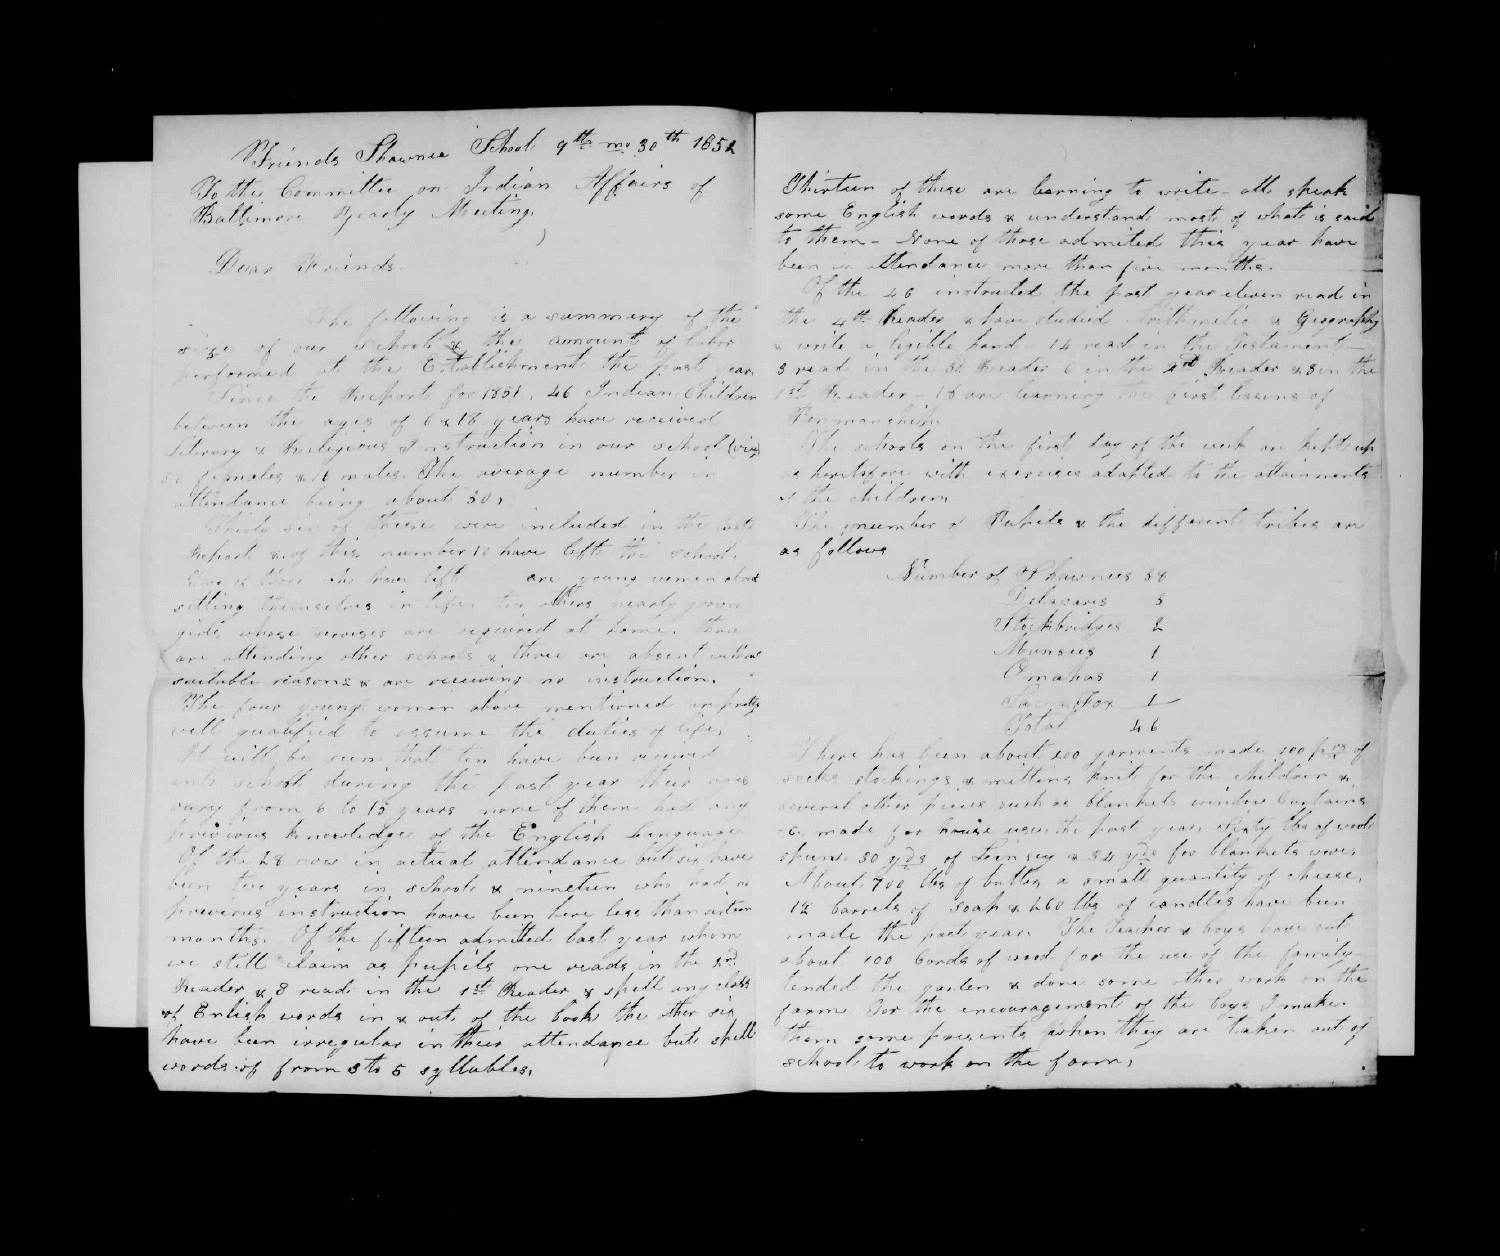 Friends Shawnee School 9th mo 30th 1852
To the Committee on Indian Affairs of
Baltimore Yearly Meeting,
Dear Friends.
The following is a summary of the
size of our school & the amount of labor
performed at the Establishment the past year
Since the Report for 1851, 46 Indian Children
between the ages of 6 & 18 years have received
Literary & Religious Instruction in our school (viz)
30 females & 16 males. The average number in
attendance being about 30,
Thirty six of these were included in the last
Report & of this number 18 have left the school.
of those who have left are young women about
setting themselves in life, ten others nearly grown
girls whose services are required at home, three
are attending other schools & three are absent without
suitable reasons & are receiving no instruction.
The four young women above mentioned are pretty
well qualified to assume the duties of life,
It will be seen that ten have been received
into school during the past year their ages
vary from 6 to 15 years none of them had any
previous knowledge of the English Language
Of the 28 now in actual attendance but six have
been two years in school & nineteen who had no
previous instruction have been here less than
months. Of the fifteen admitted last year whom
we still claim as pupils one reads in the 2nd
Reader & 8 read in the 1st Reader & spell any class
of Enlish words in & out of the book the other six
have been irregular in their attendance but spell
words of from 3 to 5 syllables,
Thirteen of these are learning to write - all speak
some English words & understand most of what is said
to them - None of those admited this year have
been in attendance more than five months.
Of the 46 instructed the past year eleven read in
the 4th Reader & have studied Arithmetic & Geography
& write a legible hand - 14 read in the Testament -
3 read in the 3d Reader 6 in the 2nd Reader & 8 in the
1st Reader - 18 are learning the first lessons of
Penmanship
The schools on the first day of the week are kept up
as heretofore with exercises adapted to the attainments
of the children
The number of Pupils & the different tribes are
as follows
Number of Shawnees 38
Delawares 3
Stockbridges 2
Munsies 1
Omahas 1
Sac & Fox 1
Total 46
There has been about 200 garments made 100 prs of
socks stockings & mittins knit for the children &
several other pieces such as blankets window Curtains
&c. made for house use the past year, Sixty lbs of wool
spun. 30 yds of Linsey & 34 yds for blankets wove.
About 700 lbs of butter a small quantity of cheese,
12 barrels of soap & 260 lbs of candles have been
made the past year. The Teacher & boys have cut
about 100 Cords of wood for the use of the family -
tended the garden & done some other work on the
farm. For the encouragement of the boys I make
them some presents when they are taken out of
school to work on the farm,